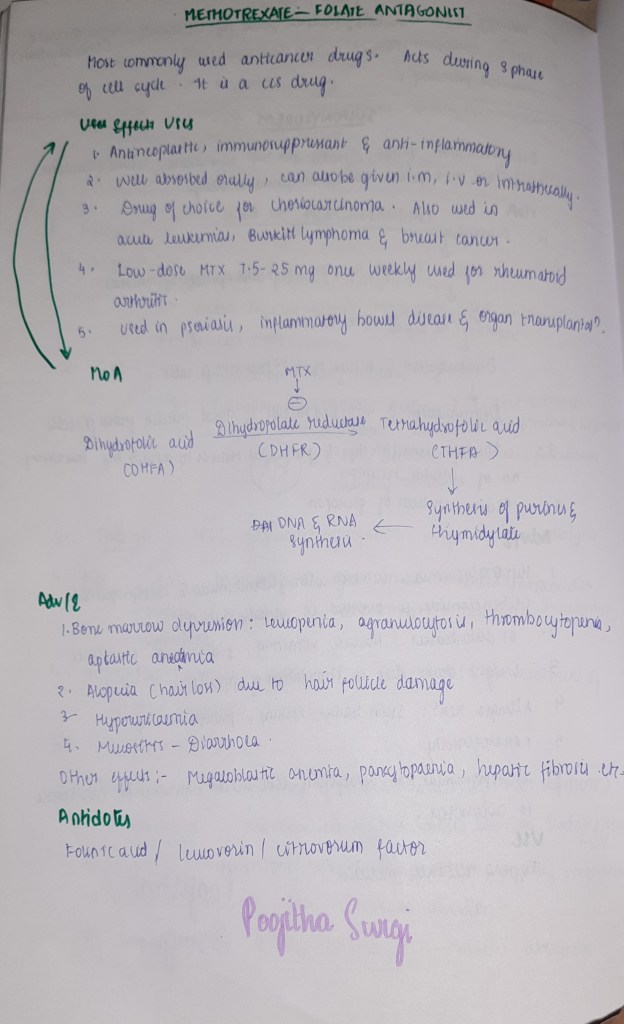 METHOTREXATE:- FOLATE ANTAGONIST
Most commonly used anticancer drugs. Acts during S phase
of cell cycle. It is a CCS drug.
Uses Effects Uses
1. Antineoplastic, immunosuppressant & anti-inflammatory
2. Well absorbed orally, can also be given i.m, i.v or intrathecally.
3. Drug of choice for choriocarcinoma. Also used in
acute leukemias, Burkitt lymphoma & breast cancer.
4. Low-dose MTX 7.5-25 mg once weekly used for rheumatoid
arthritis.
5. Used in psoriasis, inflammatory bowel disease & organ transplantatn.
MoA
MTX
Dihydrofolic acid Dihydropolate reductase Tetrahydrofolic acid
(DHFA) (DHFR) (THFA)
Synthesis of purines &
DNA & RNA thymidylate
synthesis.
Adv/E
1. Bone marrow depression: Leukopenia, agranulocytosis, thrombocytopenia,
aplastic anemia
2. Alopecia (hair loss) due to hair follicle damage
3. Hyperuricaemia
4. Mucositis - Diarrhoea.
Other effects:- Megaloblastic anemia, pancytopaenia, hepatic fibrosis etc
Antidotes
Folinic acid / leucovorin / citrovorum factor
Poojitha Surgi